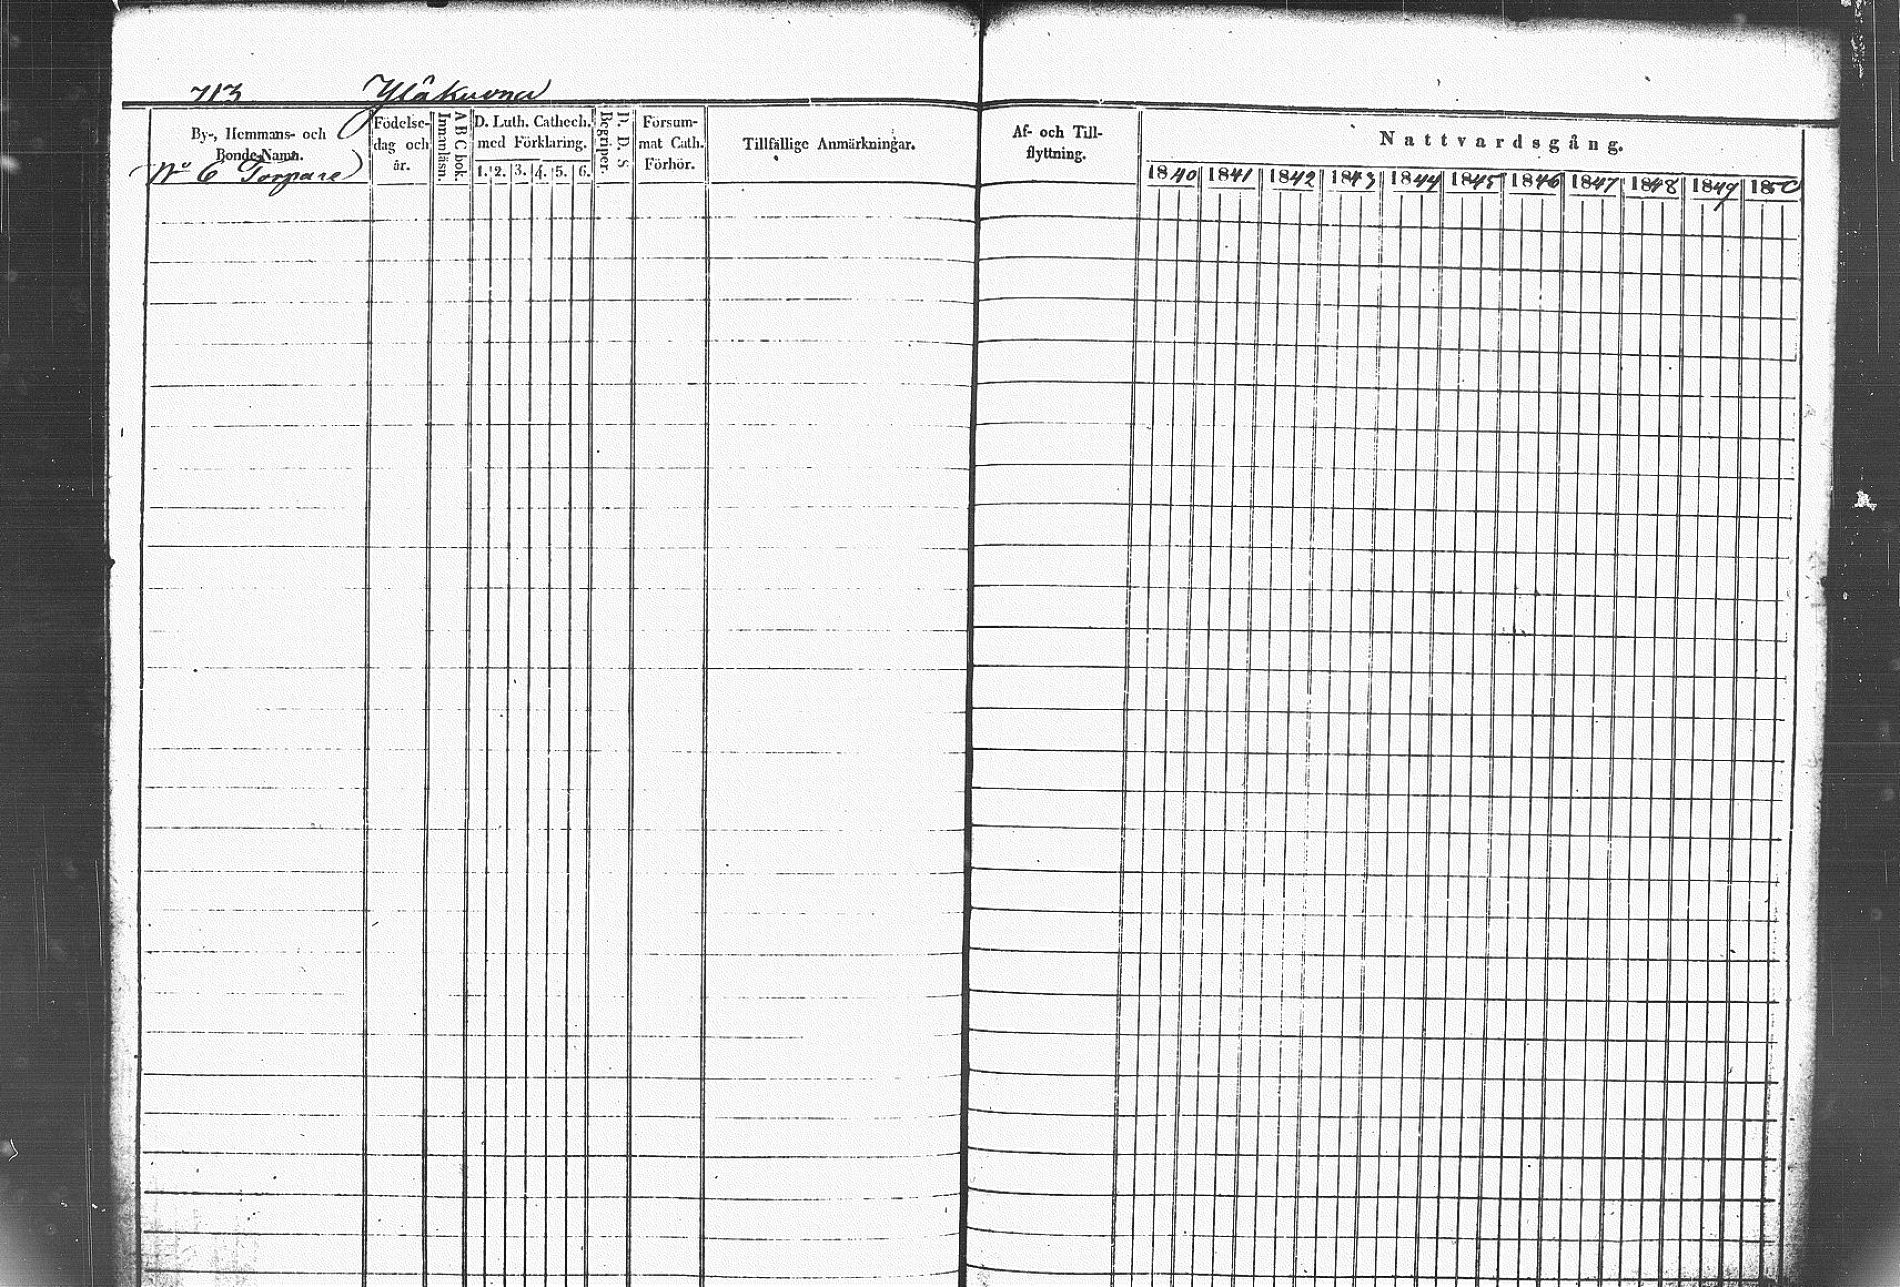 713 Yläkuona
By-, Hemmans- och
Bonde-Namn.
No 6 Torpare
Födelse-
dag och
år.
A B C bok.
Innanläsn.
D. Luth. Cathech.
med Förklaring.
1. 2. 3. 4. 5. 6.
D. D. S
Begriper.
Försum-
mat Cath.
Förhör.
Tillfällige Anmärkningar.
Af- och Till-
flyttning.
Nattvardsgång.
1840 1841 1842 1843 1844 1845 1846 1847 1848 1849 1850